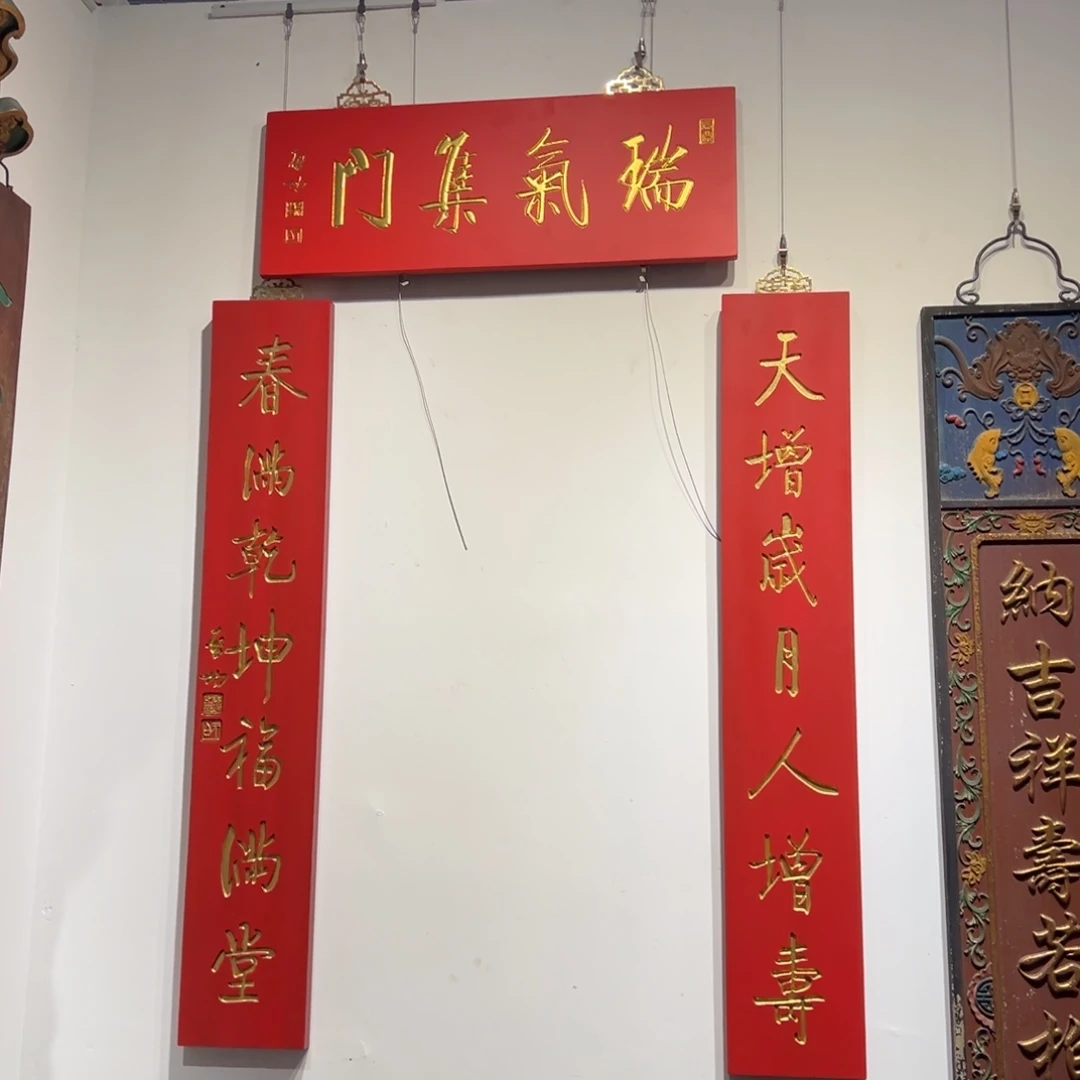 瑞氣集門
天增歲月人增壽
春滿乾坤福滿堂
啟功
納吉祥壽若